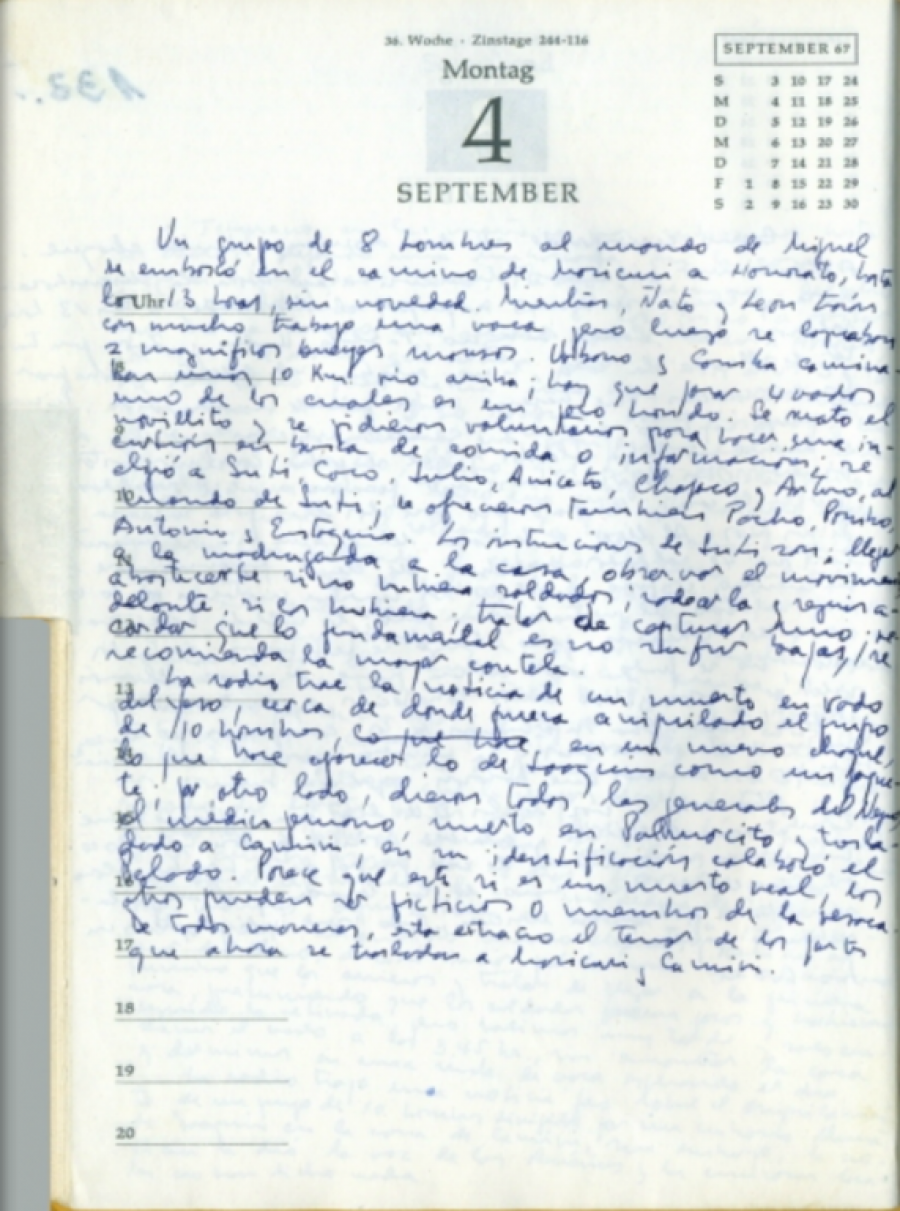 36. Woche · Zinstage 244-116
Montag
4
SEPTEMBER
SEPTEMBER 67
S 3 10 17 24
M 4 11 18 25
D 5 12 19 26
M 6 13 20 27
D 7 14 21 28
F 1 8 15 22 29
S 2 9 16 23 30
Un grupo de 8 hombres al mando de Miguel
se emboscó en el camino de Moricuri a Honorato, hasta
las Uhr 13 horas, sin novedad. Mientras, Ñato y León traían
con mucho trabajo una vaca pero luego se lograban
2 magníficos bueyes mansos. Urbano y Camba camina-
ron unos 10 Km. río arriba; hay que pasar 4 vados
uno de los cuales es un poco hondo. Se mató el
novillito y se pidieron voluntarios para hacer una in-
cursión en busca de comida o información; se
eligió a Inti, Coco, Julio, Aniceto, Chapaco y Arturo, al
mando de Inti; se ofrecieron también Pacho, Pombo,
Antonio y Eustaquio. Las instrucciones de Inti son: llegar
a la madrugada a la casa, observar el movimien
abastecerse si no hubiera soldados; rodearla y seguir a-
delante, si los hubiera; tratar de capturar uno; re-
cordar que lo fundamental es no sufrir bajas; se
recomienda la mayor cautela.
La radio trae la noticia de un muerto en vado
del yeso, cerca de donde fuera aniquilado el grupo
de 10 hombres, en un nuevo choque,
lo que hace aparecer lo de Joaquín como un paque-
te; por otro lado, dieron todas las generales del Negro
el médico peruano, muerto en Palmarito y trasla-
dado a Camiri; en su identificación colaboró el
Pelado. Parece que este si es un muerto real, los
otros pueden ser ficticios o miembros de la resaca
De todas maneras, es extraño el tenor de los partes
que ahora se trasladan a Moricuri y Camiri.
17
18
19
20